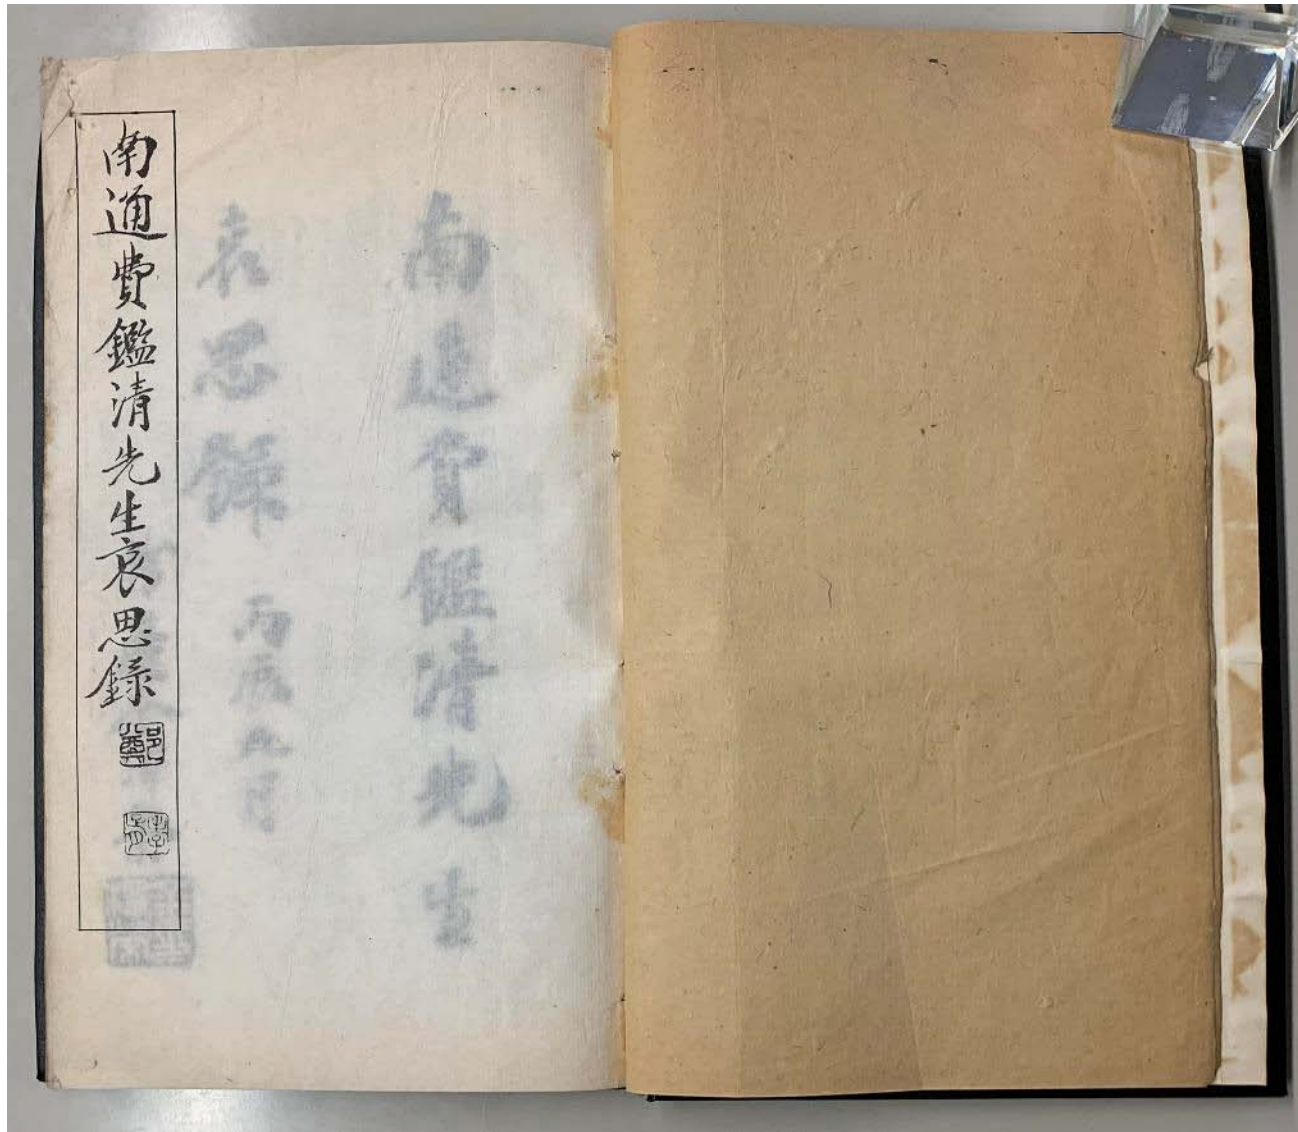 南通費鑑清先生哀思錄
南通費鑑清先生
哀思錄 丙辰九月